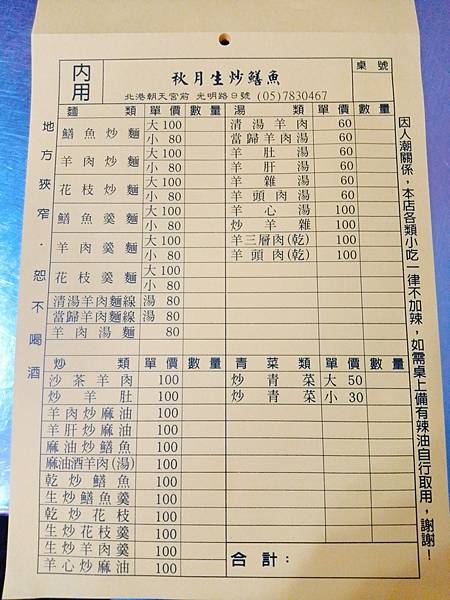 內用
秋月生炒鱔魚
桌號
北港朝天宮前 光明路9號 (05)7830467
地方狹窄．恕不喝酒
麵類 單價 數量 湯類 單價 數量
鱔魚炒麵 大100 小 80
羊肉炒麵 大100 小 80
花枝炒麵 大100 小 80
鱔魚羹麵 大100 小 80
羊肉羹麵 大100 小 80
花枝羹麵 大100 小 80
清湯羊肉麵線 湯 80
當歸羊肉麵線 湯 80
羊肉湯麵 80
清湯羊肉 60
當歸羊肉湯 60
羊肚湯 60
羊肝湯 60
羊雜湯 60
羊頭肉湯 60
羊心湯 100
炒羊雜 100
羊三層肉(乾) 100
羊頭肉(乾) 100
炒類 單價 數量 青菜類 單價 數量
沙茶羊肉 100
炒羊肚 100
羊肉炒麻油 100
羊肝炒麻油 100
麻油炒鱔魚 100
麻油酒羊肉(湯) 100
乾炒鱔魚 100
生炒鱔魚羹 100
乾炒花枝 100
生炒花枝羹 100
生炒羊肉羹 100
羊心炒麻油 100
炒青菜 大 50
炒青菜 小 30
合計：
因人潮關係，本店各類小吃一律不加辣，如需桌上備有辣油自行取用，謝謝！